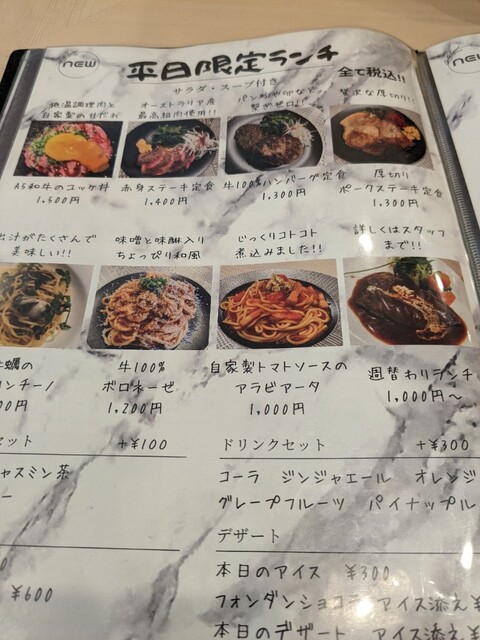 NEW
平日限定ランチ
NEW
サラダ・スープ付き
全て税込!!
低温調理肉と
自家製の
オーストラリア産
最高 使用!!
パン粉や卵など
繋ぎゼロ!!
贅沢な厚切り!!
A5和牛のユッケ丼
1,500円
赤身ステーキ定食
1,400円
牛100%ハンバーグ定食
1,300円
厚切り
ポークステーキ定食
1,300円
出汁がたくさんで
美味しい!!
味噌と味醂入り
ちょっぴり和風
じっくりコトコト
煮込みました!!
詳しくはスタッフ
まで!!
牡蠣の
ンチーノ
00円
牛100%
ボロネーゼ
1,200円
自家製トマトソースの
アラビアータ
1,000円
週替わりランチ
1,000円〜
セット +¥100
ャスミン茶
ドリンクセット +¥300
コーラ ジンジャエール オレンジ
グレープフルーツ パイナップル
デザート
¥600
本日のアイス ¥300
フォンダンショコラ アイス添え ¥
本日のデザート アイス添え ¥